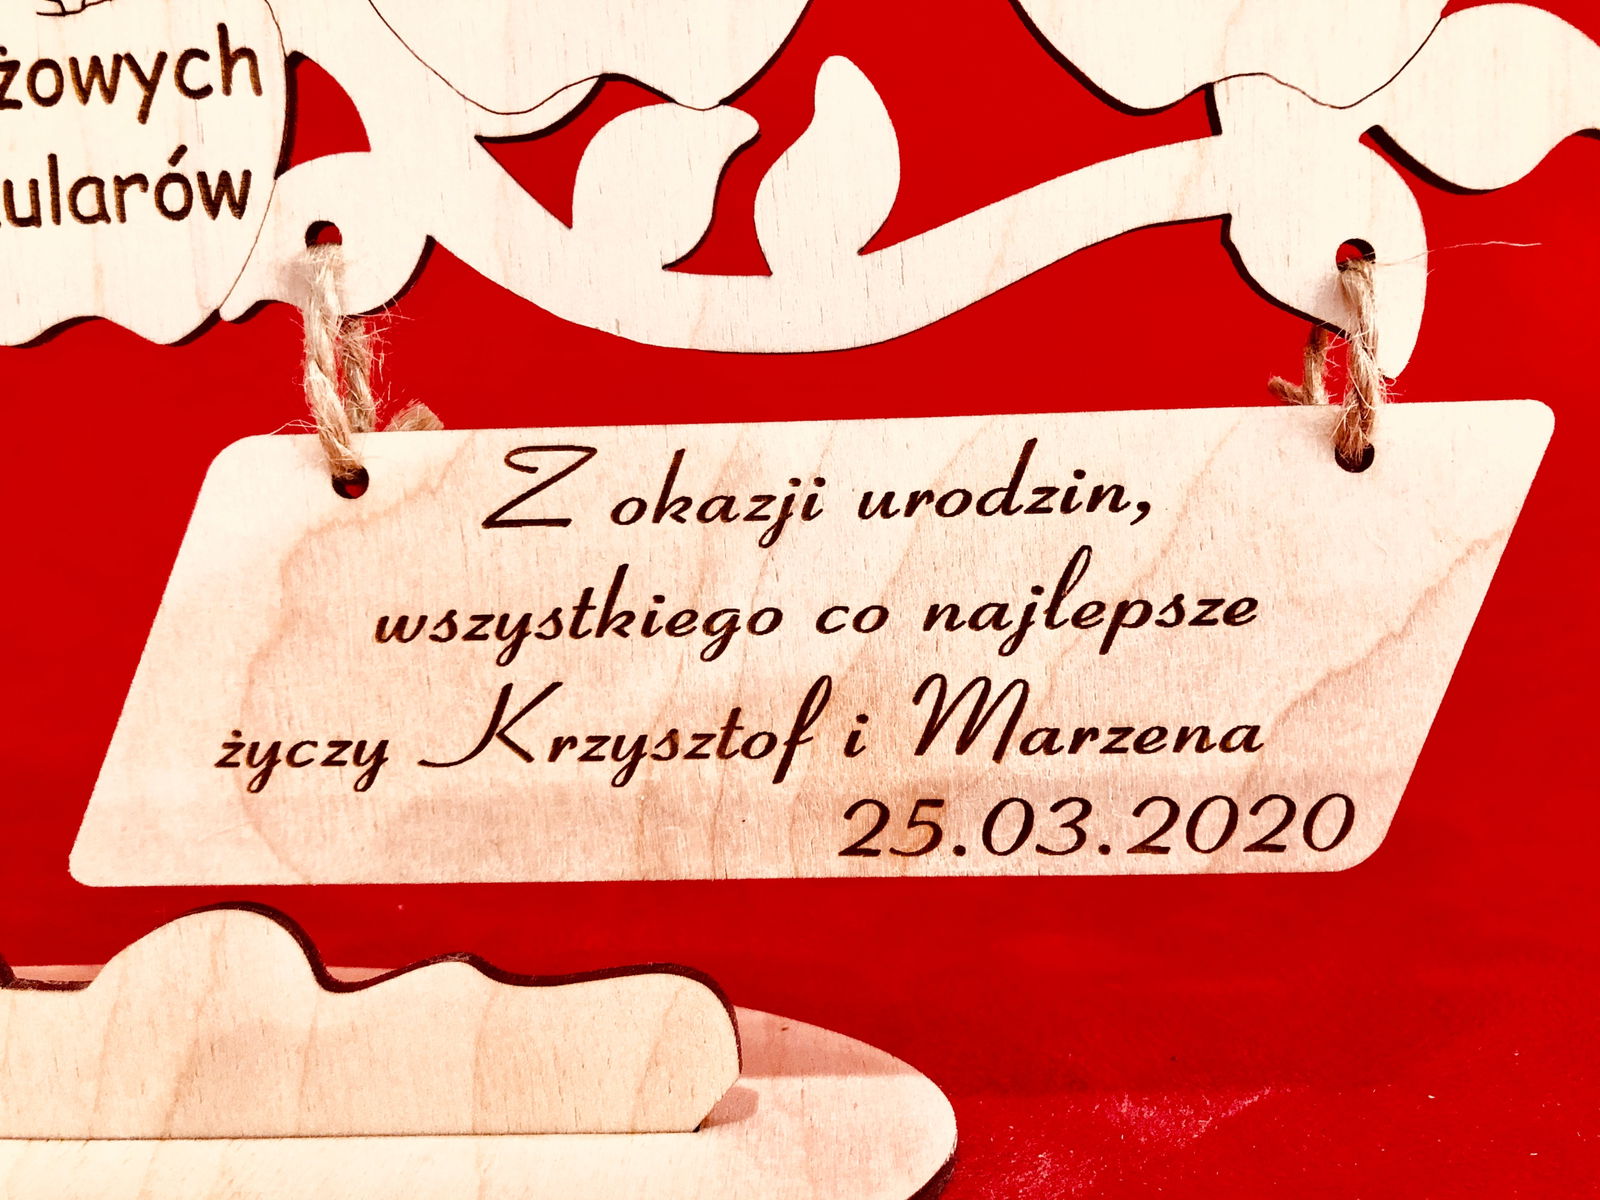 Z okazji urodzin,
wszystkiego co najlepsze
życzy Krzysztof i Marzena
25.03.2020